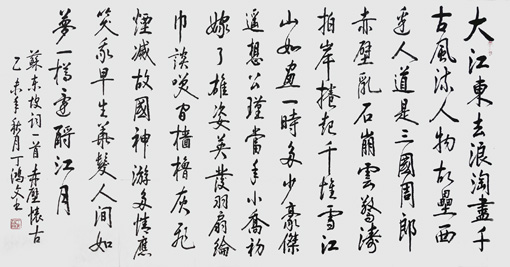 大江東去浪淘盡千
古風流人物故壘西
邊人道是三國周郎
赤壁亂石崩雲驚濤
拍岸捲起千堆雪江
山如畫一時多少豪傑
遙想公瑾當年小喬初
嫁了雄姿英發羽扇綸
巾談笑間檣櫓灰飛
煙滅故國神游多情應
笑我早生華髮人間如
夢一樽還酹江月
蘇東坡詞一首赤壁懷古
乙未年秋月丁鴻文書